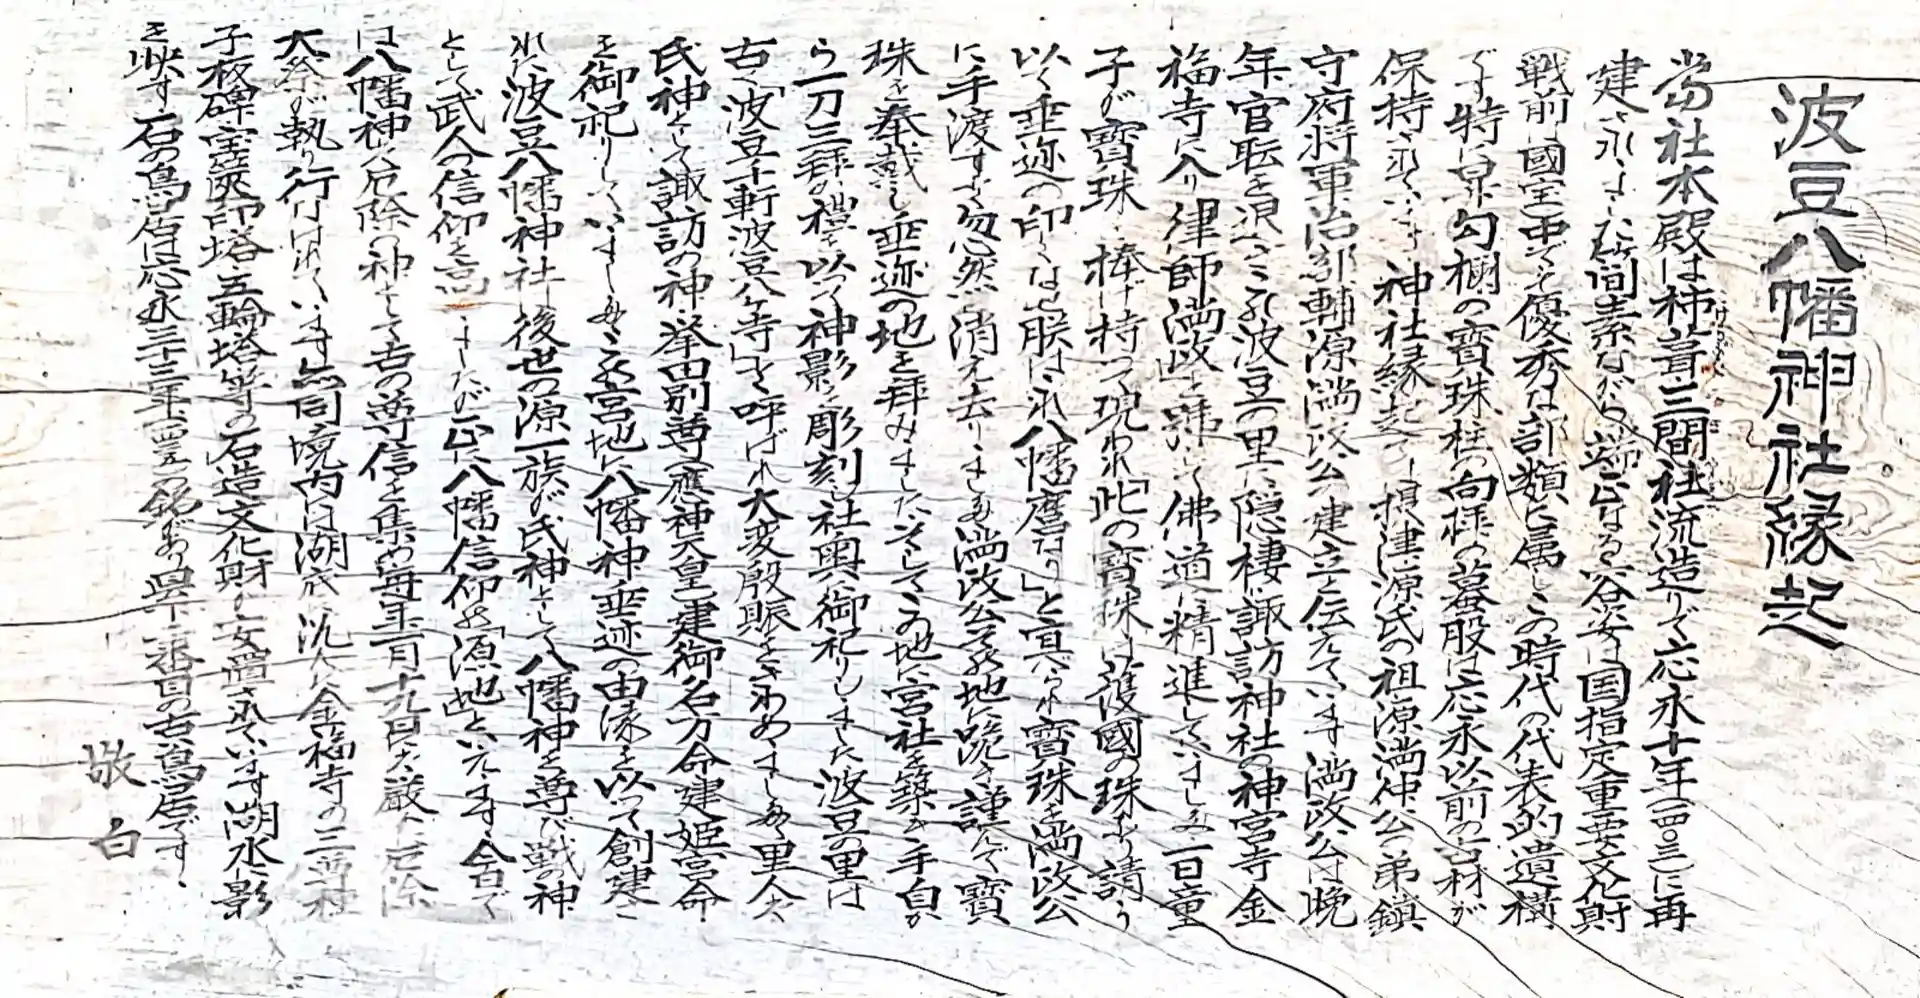 波豆八幡神社縁起
当社本殿は柿葺三間社流造りで応永十年(一四〇三)に再
建されました 三間素ながら端正なる容姿は国指定重要文化財
(戦前は國宝)中でも優秀な部類に属しこの時代の代表的遺構
です 特に昇勾欄の寶珠柱や向拝の蟇股は応永以前の古材が
保持されています 神社縁起 摂津源氏の祖源満仲公の弟鎮
守府将軍治部輔源満政公の建立と伝えています 満政公は晩
年官職を退きこの波豆の里に隠棲し諏訪神社の神宮寺金
福寺に入り律師満政と号して佛道に精進していました 一日童
子が寶珠を棒げ持って現われ「此の寶珠は護國の珠なり請う
以て垂迹の印となせ朕は八幡麿なり」と宣られ寶珠を満政公
に手渡すや忽然と消え去りました 満政公その地に跪き謹んで寶
珠を奉戴し垂迹の地を拝みました そしてこの地に宮社を築き手自か
ら一刀三拝の禮を以って神影を彫刻し社奥へ御祀りしました 波豆の里は
古く「波豆千軒波豆八ヶ寺」と呼ばれ大変殷賑をきわめました 里人は
氏神として諏訪の神々挙田別尊(應神天皇)建御名方命建姫宮命
を御祀りしていましたがこの宮地に八幡神垂迹の由縁を以って創建さ
れた波豆八幡神社は後世の源一族が氏神として八幡神を尊び戦の神
として武人の信仰を高 ましたが 八幡信仰の「源地」といえます 今日で
は八幡神は厄除の神として古の尊信を集め毎年一月十九日に厳かに厄除
大祭が執り行はれています 尚同境内は湖底に沈んだ金福寺の三
子板碑宝篋印塔五輪塔等の石造文化財が安置されています 湖水に影
を映す石の鳥居は応永三十三年 の銘があり県下二番目の古鳥居です、
敬白